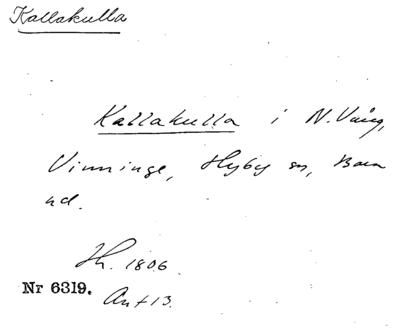 Kallakulla
Kallakulla i N. Vång,
Vinninge, Hyby sn, Bara
hd.
Jh. 1806.
Nr 6319.
Ant 13.